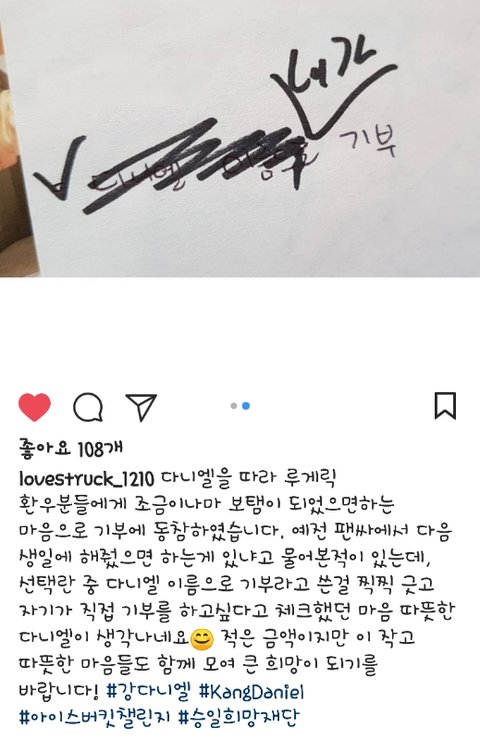 내가
다니엘 이름으로 기부
좋아요 108개
lovestruck_1210 다니엘을 따라 루게릭
환우분들에게 조금이나마 보탬이 되었으면하는
마음으로 기부에 동참하였습니다. 예전 팬싸에서 다음
생일에 해줬으면 하는게 있냐고 물어본적이 있는데,
선택란 중 다니엘 이름으로 기부라고 쓴걸 찍찍 긋고
자기가 직접 기부를 하고싶다고 체크했던 마음 따뜻한
다니엘이 생각나네요😊 적은 금액이지만 이 작고
따뜻한 마음들도 함께 모여 큰 희망이 되기를
바랍니다! #강다니엘 #KangDaniel
#아이스버킷챌린지 #승일희망재단